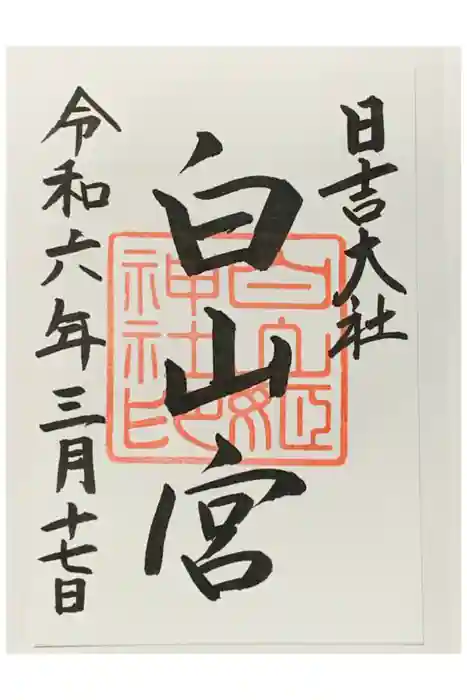 日吉大社
白山宮
白山姫神社印
令和六年三月十七日